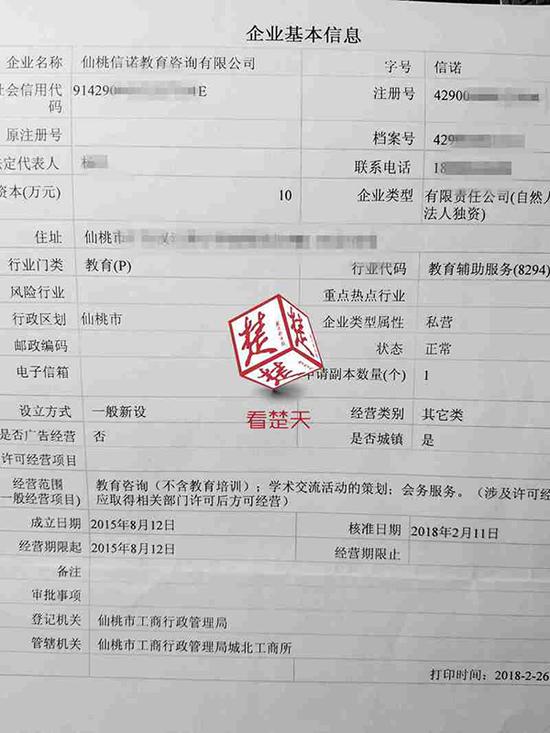 企业基本信息
企业名称 仙桃信诺教育咨询有限公司 字号 信诺
社会信用代码 914290 E 注册号 42900
原注册号 档案号 429
法定代表人 杨 联系电话 18
资本(万元) 10 企业类型 有限责任公司(自然人
法人独资)
住址 仙桃市
行业门类 教育(P) 行业代码 教育辅助服务(8294)
风险行业 重点热点行业
行政区划 仙桃市 企业类型属性 私营
邮政编码 状态 正常
电子信箱 申请副本数量(个) 1
楚
楚
楚
看楚天
设立方式 一般新设 经营类别 其它类
是否广告经营 否 是否城镇 是
许可经营项目
经营范围 教育咨询（不含教育培训）；学术交流活动的策划；会务服务。（涉及许可经
一般经营项目) 应取得相关部门许可后方可经营）
成立日期 2015年8月12日 核准日期 2018年2月11日
经营期限起 2015年8月12日 经营期限止
备注
审批事项
登记机关 仙桃市工商行政管理局
管辖机关 仙桃市工商行政管理局城北工商所
打印时间：2018-2-26